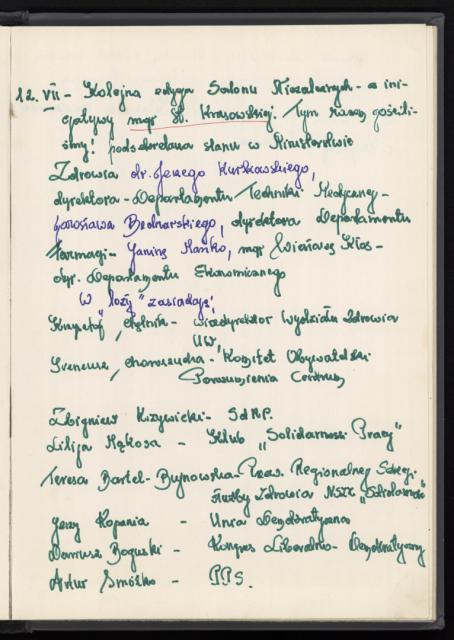 12. VII - Kolejna edycja Salonu Niezależnych - z ini-
cjatywy mgr B. Krasowskiej. Tym razem gości-
śmy: podsekretarza stanu w Ministerstwie
Zdrowia dr. Jerzego Kurkowskiego,
dyrektora - Departamentu Techniki Medycznej -
Jarosława Bednarskiego, dyrektora Departamentu
Farmacji - Janinę Mańko, mgr Wiesława Kłos -
dyr. Departamentu Ekonomicznego
W loży "zasiadają":
Krzysztof - wicedyrektor Wydziału Zdrowia
UW,
Ireneusz - Komitet Obywatelski
Porozumienia Centrum
Zbigniew Krzywicki - SdRP.
Lilija Mękosa - Klub "Solidarność Pracy"
Teresa Bartel-Bujnowska - Przew. Regionalnej Sekcji
Służby Zdrowia NSZZ "Solidarność"
Jerzy Kopania - Unia Demokratyczna
Dariusz Boguski - Kongres Liberalno-Demokratyczny
Artur Smółko - PPS.